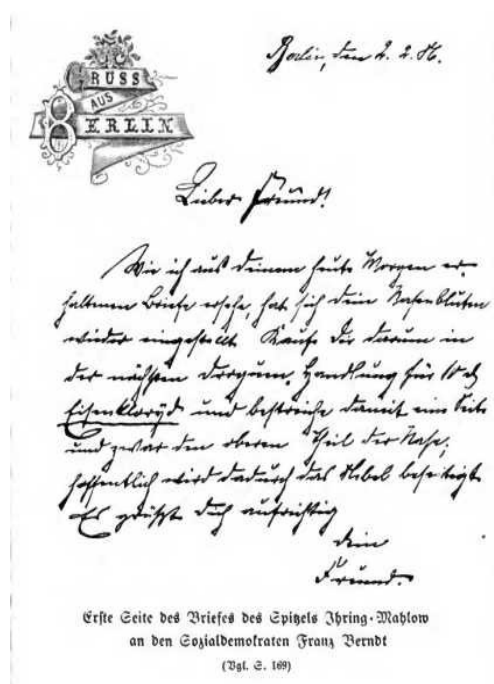 GRUSS
AUS
BERLIN
Berlin, den 2. 2. 86.
Lieber Freund!
Wie ich aus deinem heute Morgen er-
haltenen Briefe ersehe, hat sich dein Nasenbluten
wieder eingestellt. Kaufe dir darum in
der nächsten Droguen-Handlung für 10 ₰
Eisenkloryd und bestreiche damit eine Seite
und zwar den oberen Theil der Nase,
hoffentlich wird dadurch das Uibel beseitigt.
Es grüßt dich aufrichtig
dein
Freund.
Erste Seite des Briefes des Spitzels Ihring-Mahlow
an den Sozialdemokraten Franz Berndt
(Vgl. S. 169)